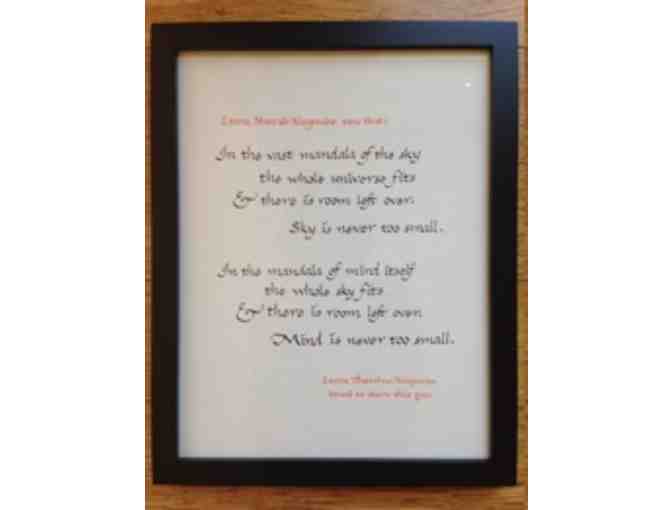 In the vast mandala of the sky
the whole universe fits
& there is room left over.
Sky is never too small.
In the mandala of mind itself
the whole sky fits
& there is room left over.
Mind is never too small.